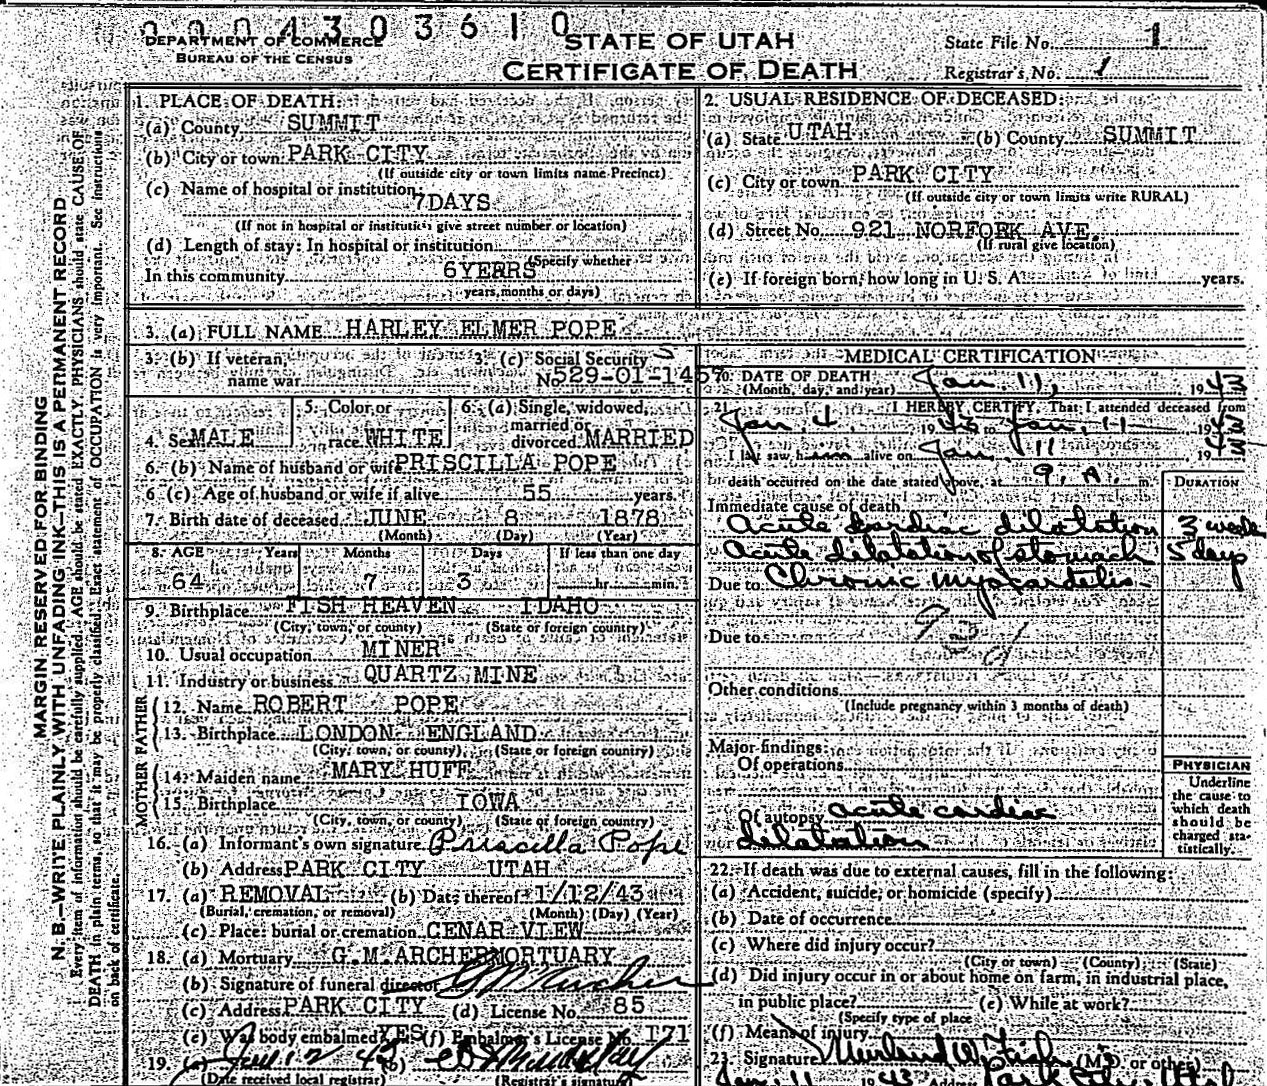 0004303610
DEPARTMENT OF COMMERCE
BUREAU OF THE CENSUS
STATE OF UTAH
CERTIFICATE OF DEATH
State File No. 1
Registrar's No. 1
MARGIN RESERVED FOR BINDING
N. B.—WRITE PLAINLY WITH UNFADING INK—THIS IS A PERMANENT RECORD
Every item of information should be carefully supplied. AGE should be stated EXACTLY. PHYSICIANS should state CAUSE OF
DEATH in plain terms, so that it may be properly classified. Exact statement of OCCUPATION is very important. See instructions
on back of certificate.
1. PLACE OF DEATH:
(a) County SUMMIT
(b) City or town PARK CITY
(If outside city or town limits name Precinct)
(c) Name of hospital or institution:
7DAYS
(If not in hospital or institution give street number or location)
(d) Length of stay: In hospital or institution
(Specify whether
In this community 6YEARS
years, months or days)
2. USUAL RESIDENCE OF DECEASED:
(a) State UTAH (b) County SUMMIT
(c) City or town PARK CITY
(If outside city or town limits write RURAL)
(d) Street No. 921 NORFORK AVE.
(If rural give location)
(e) If foreign born, how long in U. S. A. years.
3. (a) FULL NAME HARLEY ELMER POPE
3. (b) If veteran, 3. (c) Social Security
name war No. 529-01-1457
4. Sex MALE
5. Color or
race WHITE
6. (a) Single, widowed,
married or
divorced MARRIED
6. (b) Name of husband or wife PRISCILLA POPE
6 (c) Age of husband or wife if alive 55 years.
7. Birth date of deceased JUNE 8 1878
(Month) (Day) (Year)
8. AGE Years Months Days If less than one day
64 7 3 hr. min.
9. Birthplace FISH HEAVEN IDAHO
(City, town, or county) (State or foreign country)
10. Usual occupation MINER
11. Industry or business QUARTZ MINE
FATHER
12. Name ROBERT POPE
13. Birthplace LONDON ENGLAND
(City, town, or county) (State or foreign country)
MOTHER
14. Maiden name MARY HUFF
15. Birthplace IOWA
(City, town, or county) (State or foreign country)
16. (a) Informant's own signature Priscilla Pope
(b) Address PARK CITY UTAH
17. (a) REMOVAL (b) Date thereof 1/12/43
(Burial, cremation, or removal) (Month) (Day) (Year)
(c) Place: burial or cremation CENAR VIEW
18. (a) Mortuary G.M.ARCHERMORTUARY
(b) Signature of funeral director G M Archer
(c) Address PARK CITY (d) License No. 85
(e) Was body embalmed YES (f) Embalmer's License No. 171
19. (a) (b)
(Date received local registrar) (Registrar's signature)
MEDICAL CERTIFICATION
20. DATE OF DEATH Jan. 11,
(Month, day, and year) 1943
21. I HEREBY CERTIFY, That I attended deceased from
Jan. 4, 1943 to Jan. 11 1943
I last saw him alive on Jan. 11, 1943
death occurred on the date stated above, at 9. A. m.
DURATION
Immediate cause of death
Acute cardiac dilatation 3 weeks
Acute dilatation of stomach 5 days
Due to Chronic myocarditis
93d
Due to
Other conditions
(Include pregnancy within 3 months of death)
Major findings:
Of operations
Of autopsy acute cardiac
dilatation
PHYSICIAN
Underline
the cause to
which death
should be
charged sta-
tistically.
22. If death was due to external causes, fill in the following:
(a) Accident, suicide, or homicide (specify)
(b) Date of occurrence
(c) Where did injury occur?
(City or town) (County) (State)
(d) Did injury occur in or about home on farm, in industrial place,
in public place? (e) While at work?
(Specify type of place
(f) Means of injury
23. Signature (M.D. or other)
Jan. 11 1943 Address Park City